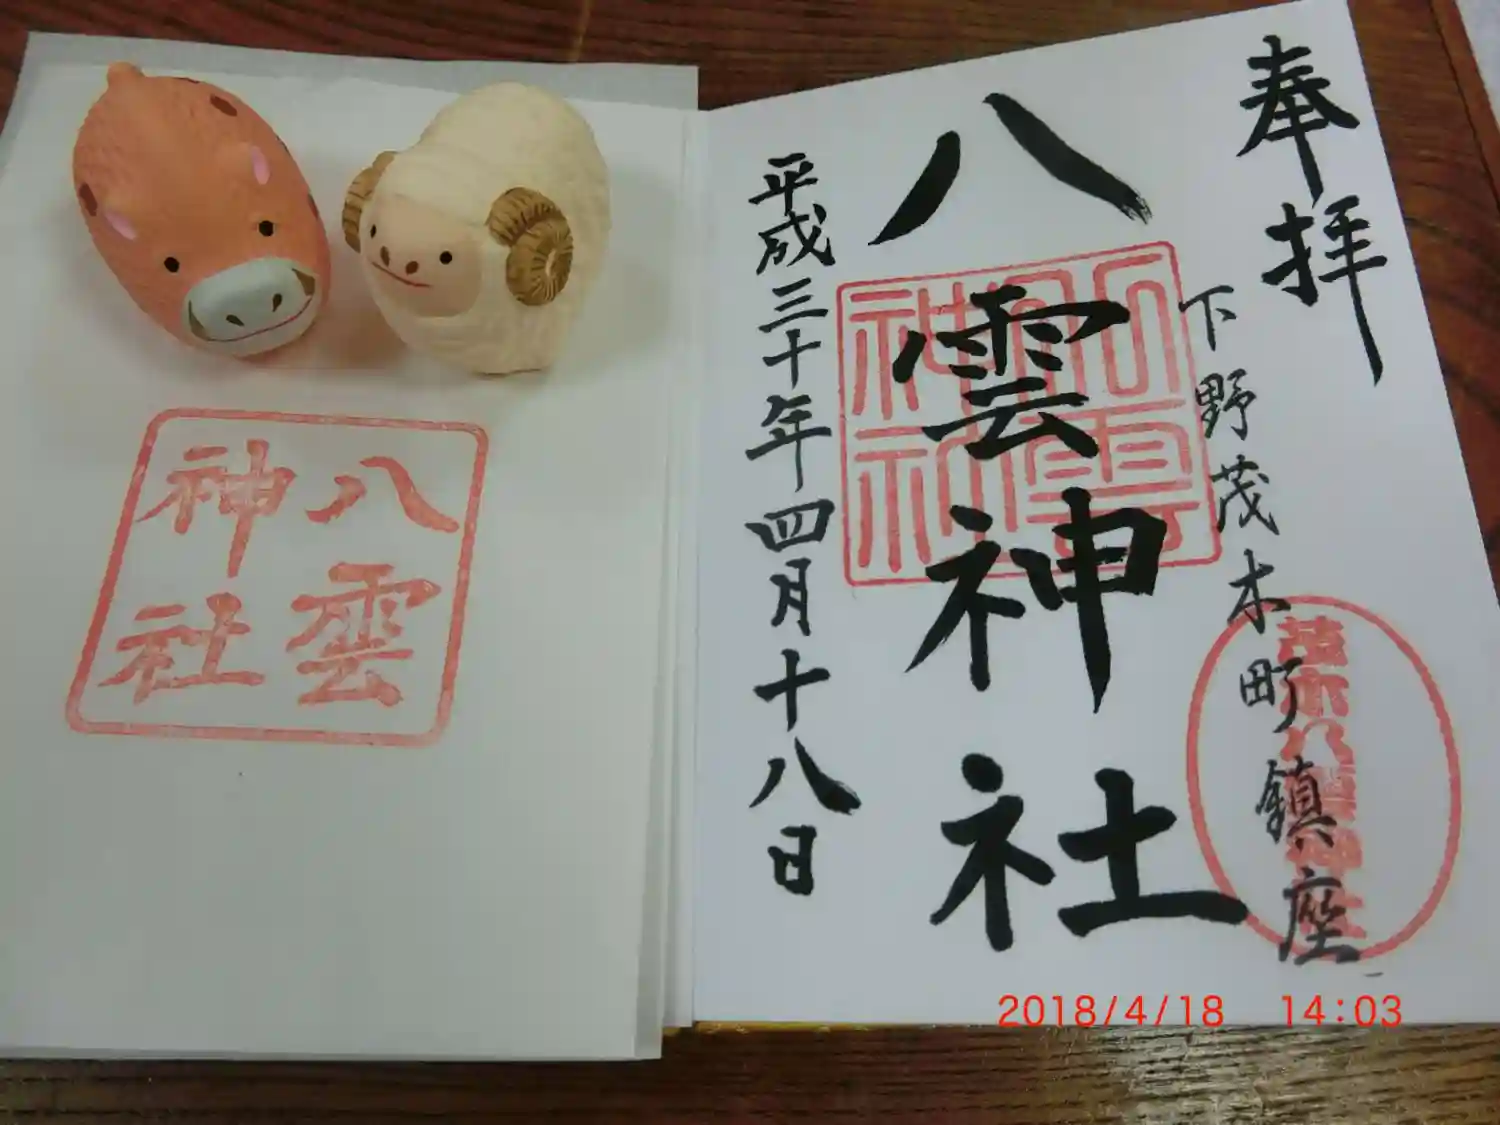 奉拝
下野茂木町鎮座
八雲神社
平成三十年四月十八日
八雲
神社
八雲
神社
茂木八雲神社
2018/4/18 14:03